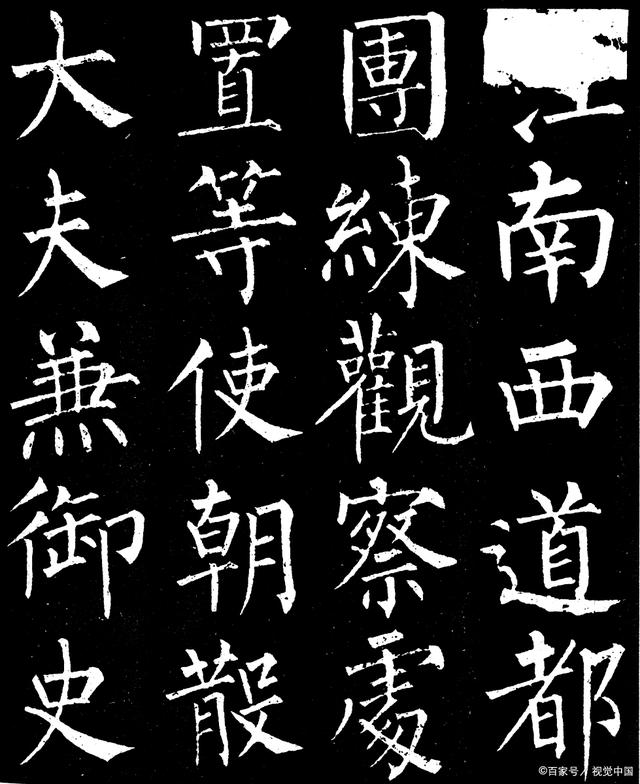 江南西道都
團練觀察處
置等使朝散
大夫兼御史
©百家号/视觉中国